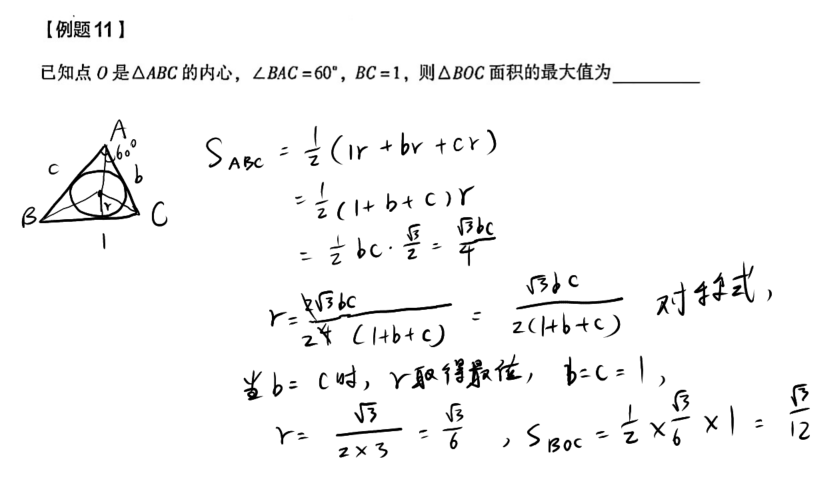 【例题11】
已知点 O 是△ABC 的内心，∠BAC=60°，BC=1，则△BOC 面积的最大值为________
A
60°
c
b
r
B
C
1
S_ABC = 1/2 (1r + br + cr)
= 1/2 (1+b+c) r
= 1/2 bc · √3/2 = √3bc/4
r = 2√3bc / 4 (1+b+c) = √3bc / 2(1+b+c) 对称式，
2
当 b = c 时，r 取得最值，b=c=1，
r = √3 / 2×3 = √3/6 ，S_BOC = 1/2 × √3/6 × 1 = √3/12